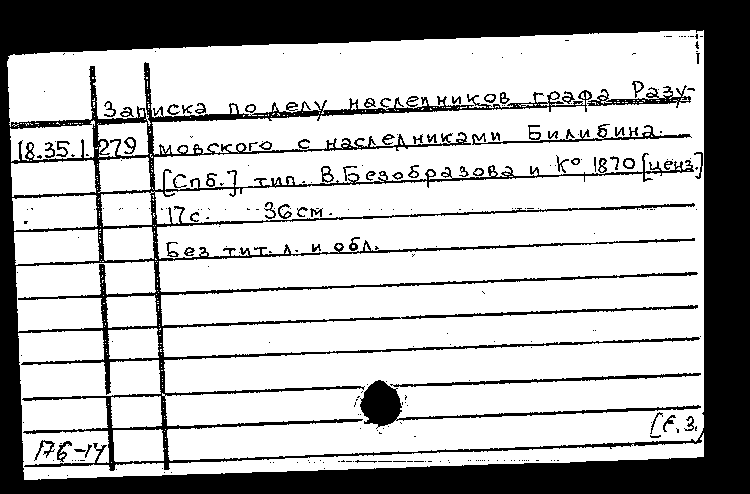 Записка по делу наследников графа Разу-
18.35.1.279 мовского с наследниками Билибина.
[Спб.], тип. В.Безобразова и К°, 1870 [ценз.]
17с. 36см.
Без тит. л. и обл.
176-14